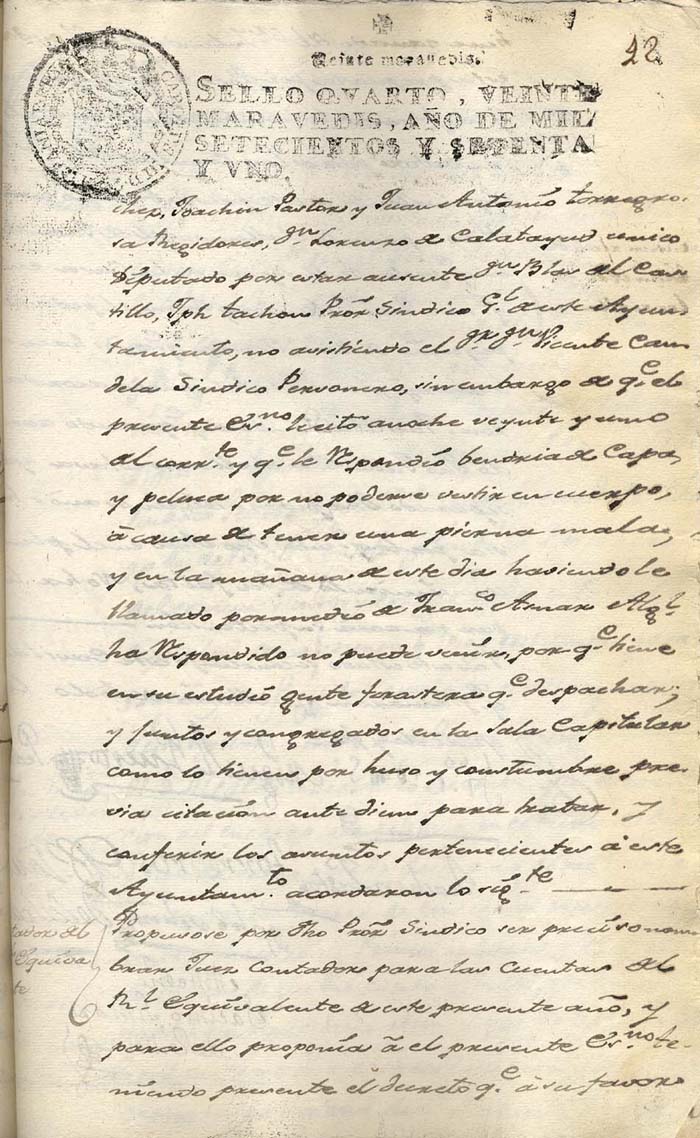 42
Veinte maravedis.
SELLO QVARTO, VEINTE
MARAVEDIS, AÑO DE MIL
SETECIENTOS Y SETENTA
Y VNO.
chez, Joachin Pastor y Juan Antonio torregro-
sa Regidores, Dn. Lorenzo de Calatayud unico
Diputado por estar ausente Dn. Blas del Cas-
tillo, Jph tachon Pror. Sindico Gl. de este Ayun-
tamiento, no asistiendo el Dr. Dn. Vicente Can
dela Sindico Personero, sin embargo de qe. el
presente Esno. le citó anoche veynte y uno
del corrte. y qe. le Respondió bendria de Capa,
y peluca por no poderse vestir en cuerpo,
à causa de tener una pierna mala,
y en la mañana de este dia haviendole
llamado por medio de Franco. Asnar Algl.
ha Respondido no puede venir, por qe. tiene
en su estudio gente forastera qe. despachar;
y juntos y congregados en la Sala Capitular
como lo tienen por huso y constumbre pre-
via citación ante diem para tratar, y
conferir los asuntos pertenecientes à este
Ayuntamto. acordaron lo sigte.
tador del
Equiva
te
Propusose por dho Pror. Sindico ser preciso nom
brar Juez Contador para las Cuentas del
Rl. Equivalente de este presente año, y
para ello proponía à el presente Esno. te-
niendo presente el decreto qe. à su favor